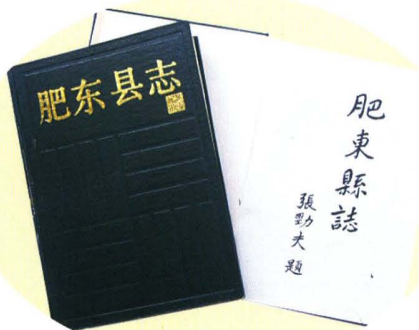 肥东县志
肥東縣誌
張勁夫 題